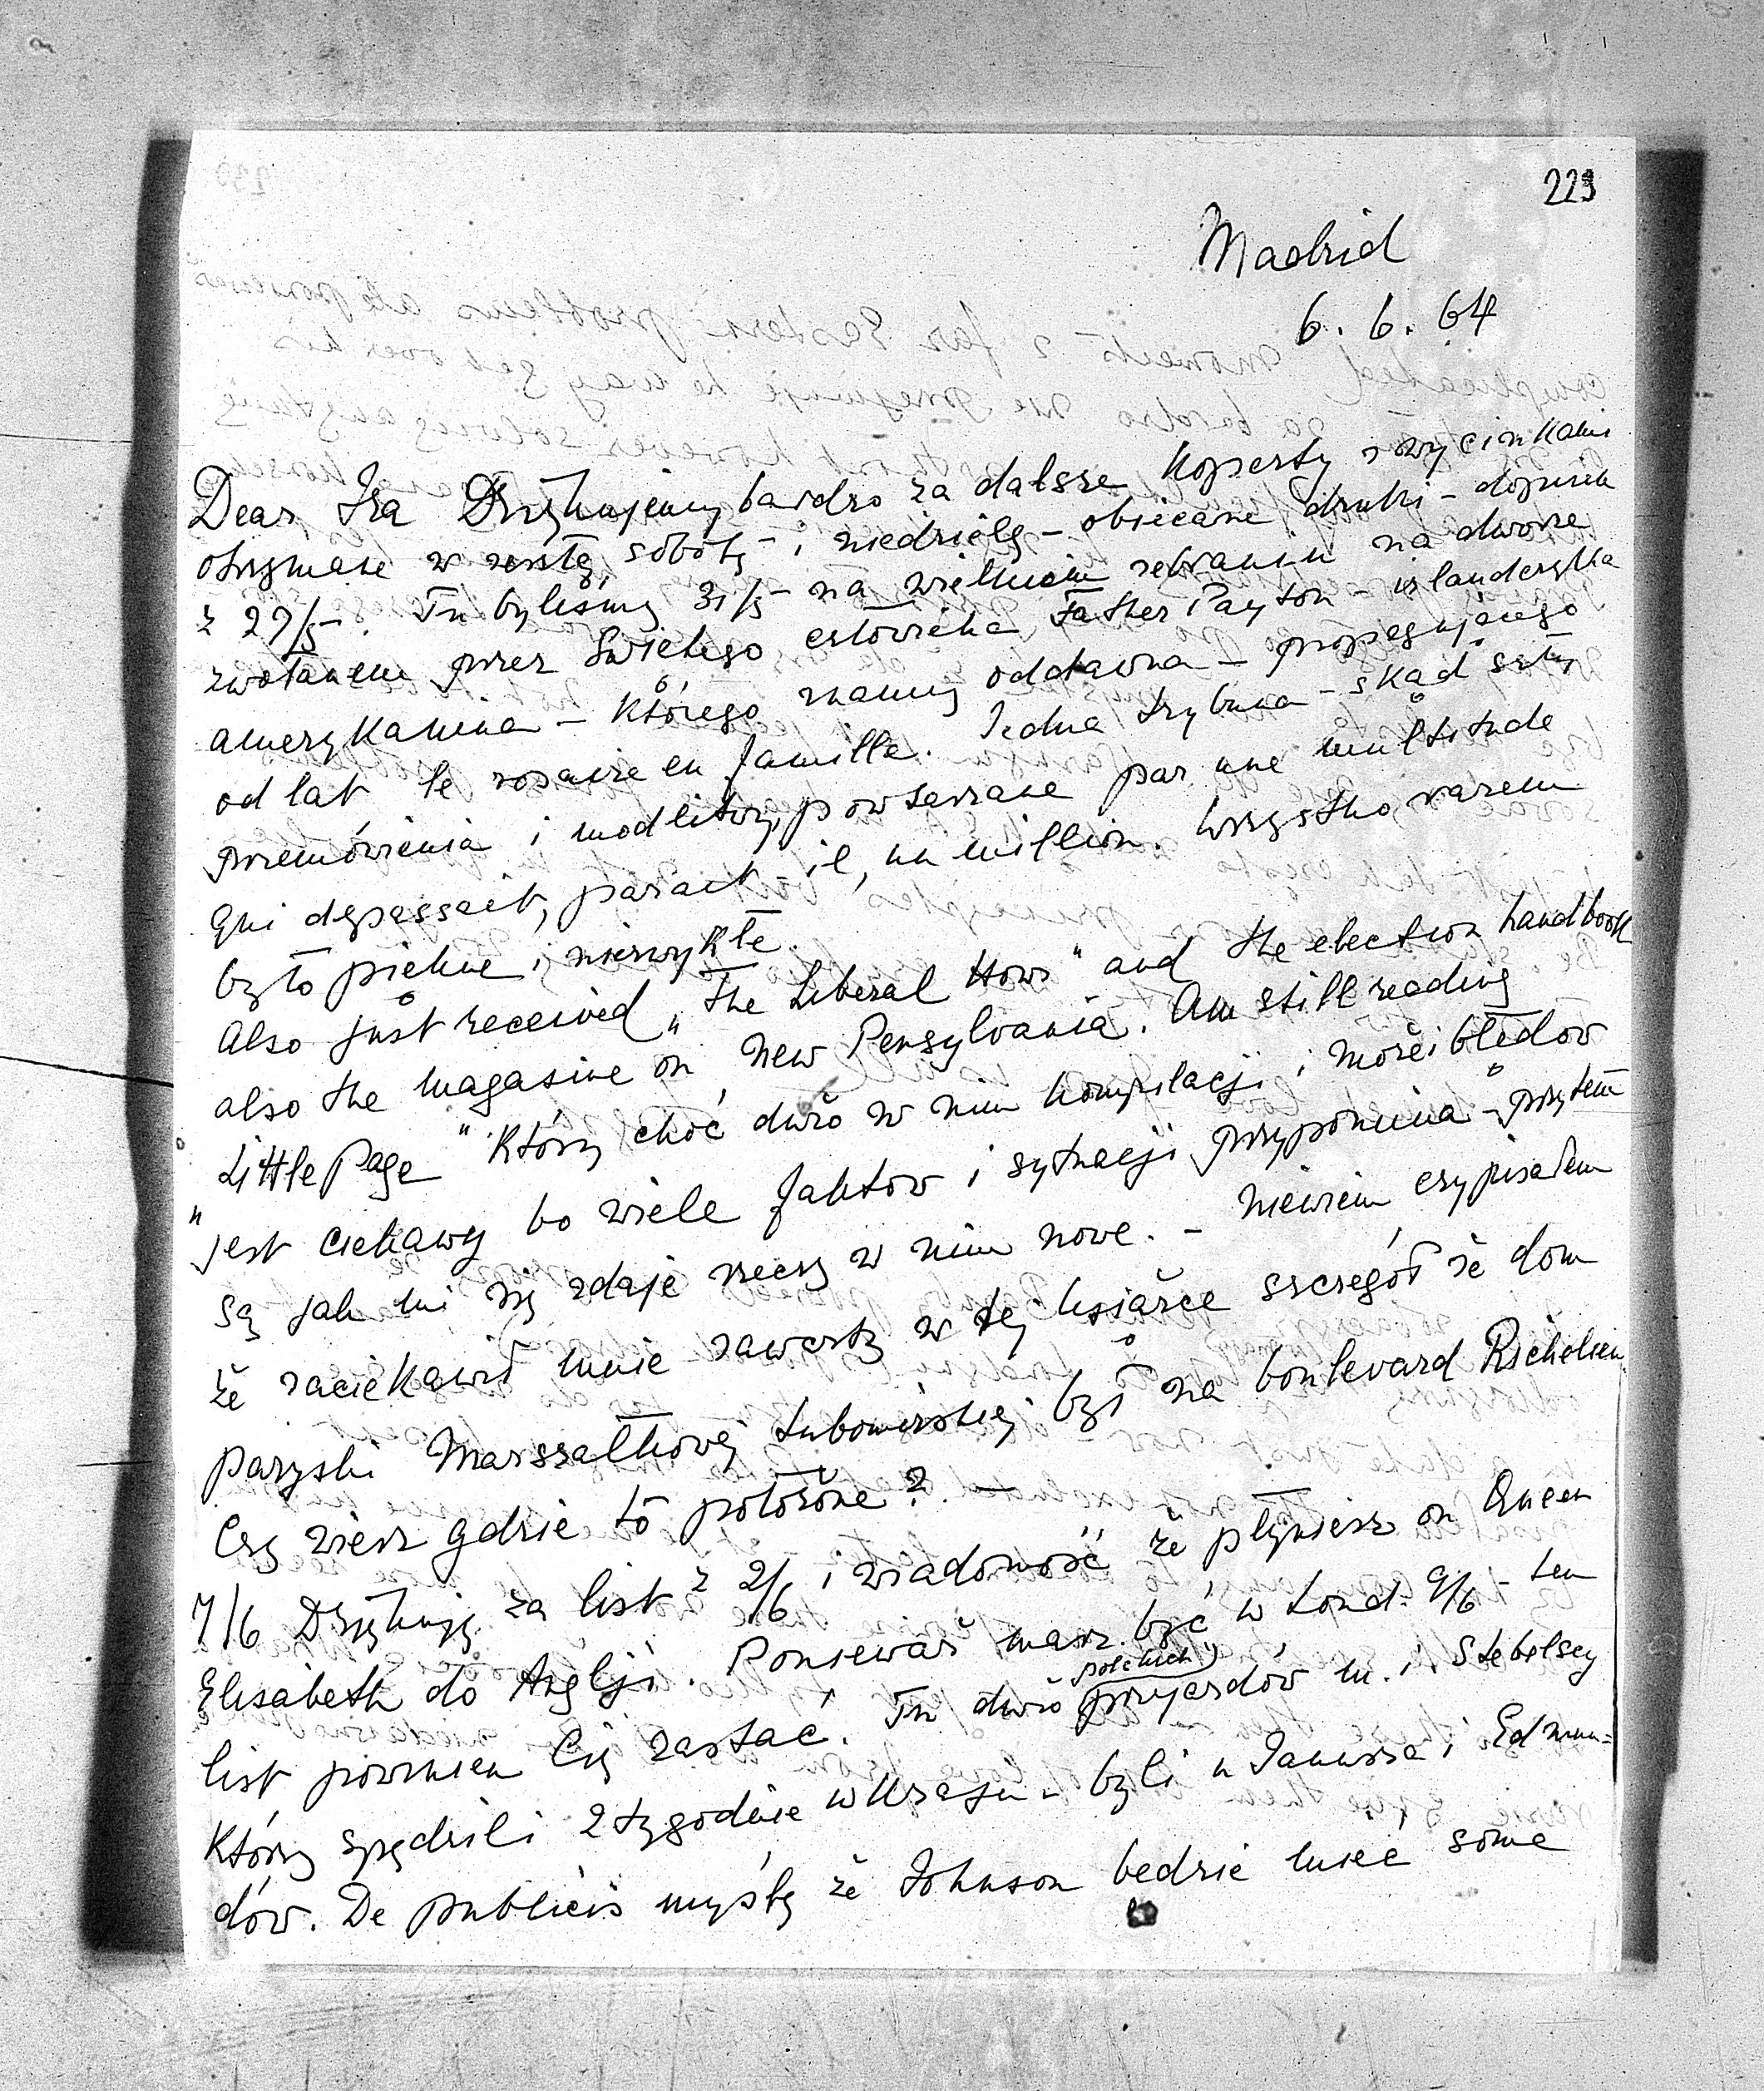 229
Madrid
6. 6. 64
Dear Ira Dziękujemy bardzo za dalsze koperty z wycinkami
otrzymane w zeszłą sobotę - i niedzielę - obiecane druki - dopisek
z 29/5. Tu byliśmy 31/5 na wielkiem zebraniu na dworze
zwołanem przez Swietego człowieka Father Payton - islandczyka
amerykanina - którego znamy oddawna - propagującego
od lat le rosaire en famille. Jedna trybuna - skąd szły
przemówienia i modlitwy, powtarzane par une multitude
qui depassait, parait-il, un million. Wszystko razem
było piękne i niezwykłe.
Also just received „The Liberal Hour" and the election handbook
also the magasine on New Pensylvania. Am still reading
Little Page" który choć dużo w nim kompilacji i może i błędów
„jest ciekawy bo wiele faktów i sytuacji przypomina - przytem
są jak mi się zdaje rzeczy w nim nowe. - Niewiem czy pisałem
że zaciekawił mnie zawarty w tej książce szczegół że dom
paryski Marszałkowej Lubomirskiej był na boulevard Richelieu.
Czy wiesz gdzie to położone? -
7/6 Dziękuję za list z 2/6 i wiadomość że płyniesz on Queen
Elisabeth do Anglji. Ponieważ masz być w Lond. 9/6 - ten
list powinien Cię zastać. Tu dużo polskich przyjazdów m. i. Stebelscy
którzy spędzili 2 tygodnie w Kraju - byli u Janusza i Edmun=
dów. De publicis myślę że Johnson bedzie mieć some